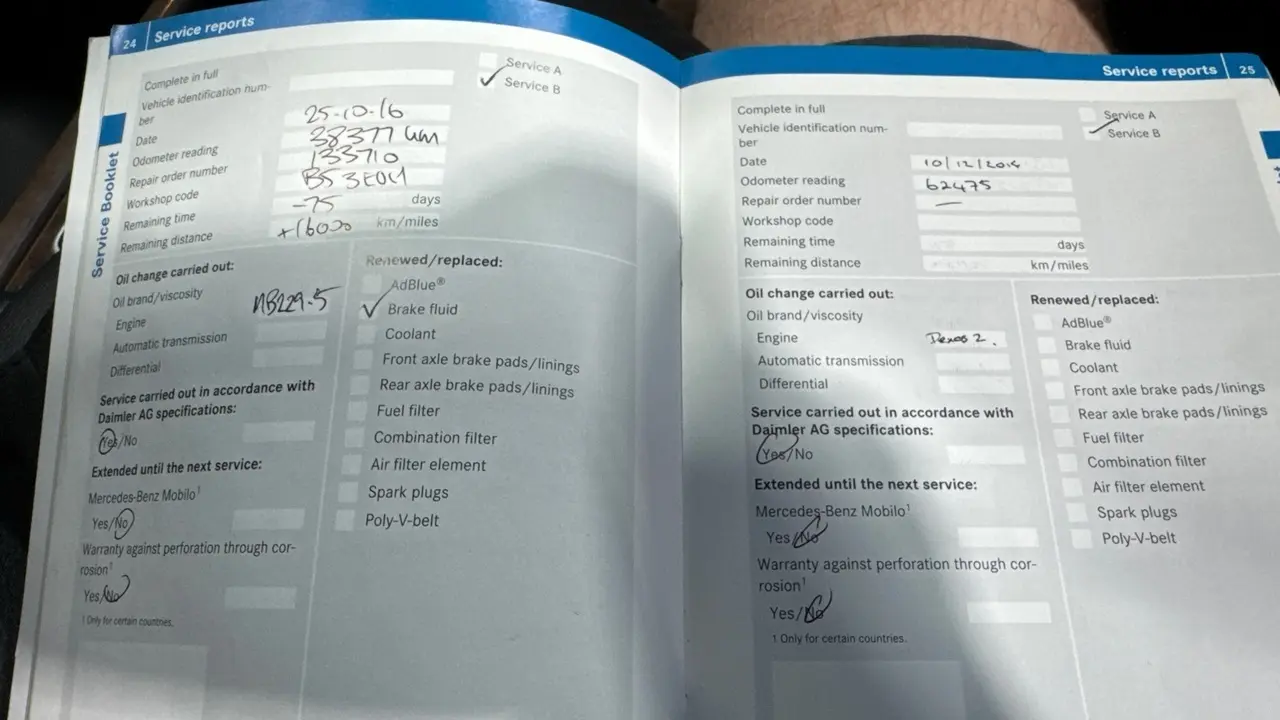 24 Service reports
Service Booklet
Complete in full
Service A
Service B
Vehicle identification num-
ber
Date 25-10-16
Odometer reading 38377 km
Repair order number 133710
Workshop code
Remaining time -75 days
Remaining distance +16000 km/miles
Oil change carried out:
Oil brand/viscosity
Engine MB229.5
Automatic transmission
Differential
Service carried out in accordance with
Daimler AG specifications:
Yes/No
Extended until the next service:
Mercedes-Benz Mobilo¹
Yes/No
Warranty against perforation through cor-
rosion¹
Yes/No
¹ Only for certain countries.
Renewed/replaced:
AdBlue®
Brake fluid
Coolant
Front axle brake pads/linings
Rear axle brake pads/linings
Fuel filter
Combination filter
Air filter element
Spark plugs
Poly-V-belt
Service reports 25
Complete in full
Service A
Service B
Vehicle identification num-
ber
Date 10/12/
Odometer reading 62475
Repair order number —
Workshop code
Remaining time days
Remaining distance km/miles
Oil change carried out:
Oil brand/viscosity
Engine Dexos 2.
Automatic transmission
Differential
Service carried out in accordance with
Daimler AG specifications:
Yes/No
Extended until the next service:
Mercedes-Benz Mobilo¹
Yes/No
Warranty against perforation through cor-
rosion¹
Yes/No
¹ Only for certain countries.
Renewed/replaced:
AdBlue®
Brake fluid
Coolant
Front axle brake pads/linings
Rear axle brake pads/linings
Fuel filter
Combination filter
Air filter element
Spark plugs
Poly-V-belt